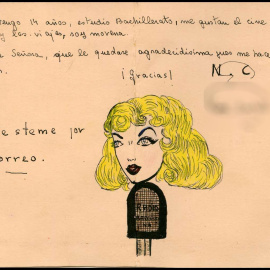 tengo 14 años, estudio Bachillerato, me gustan el cine
y los viajes, soy morena.
Señora, que le quedare agradecidísima pues me hace
¡Gracias!
N. C
steme por
orreo.